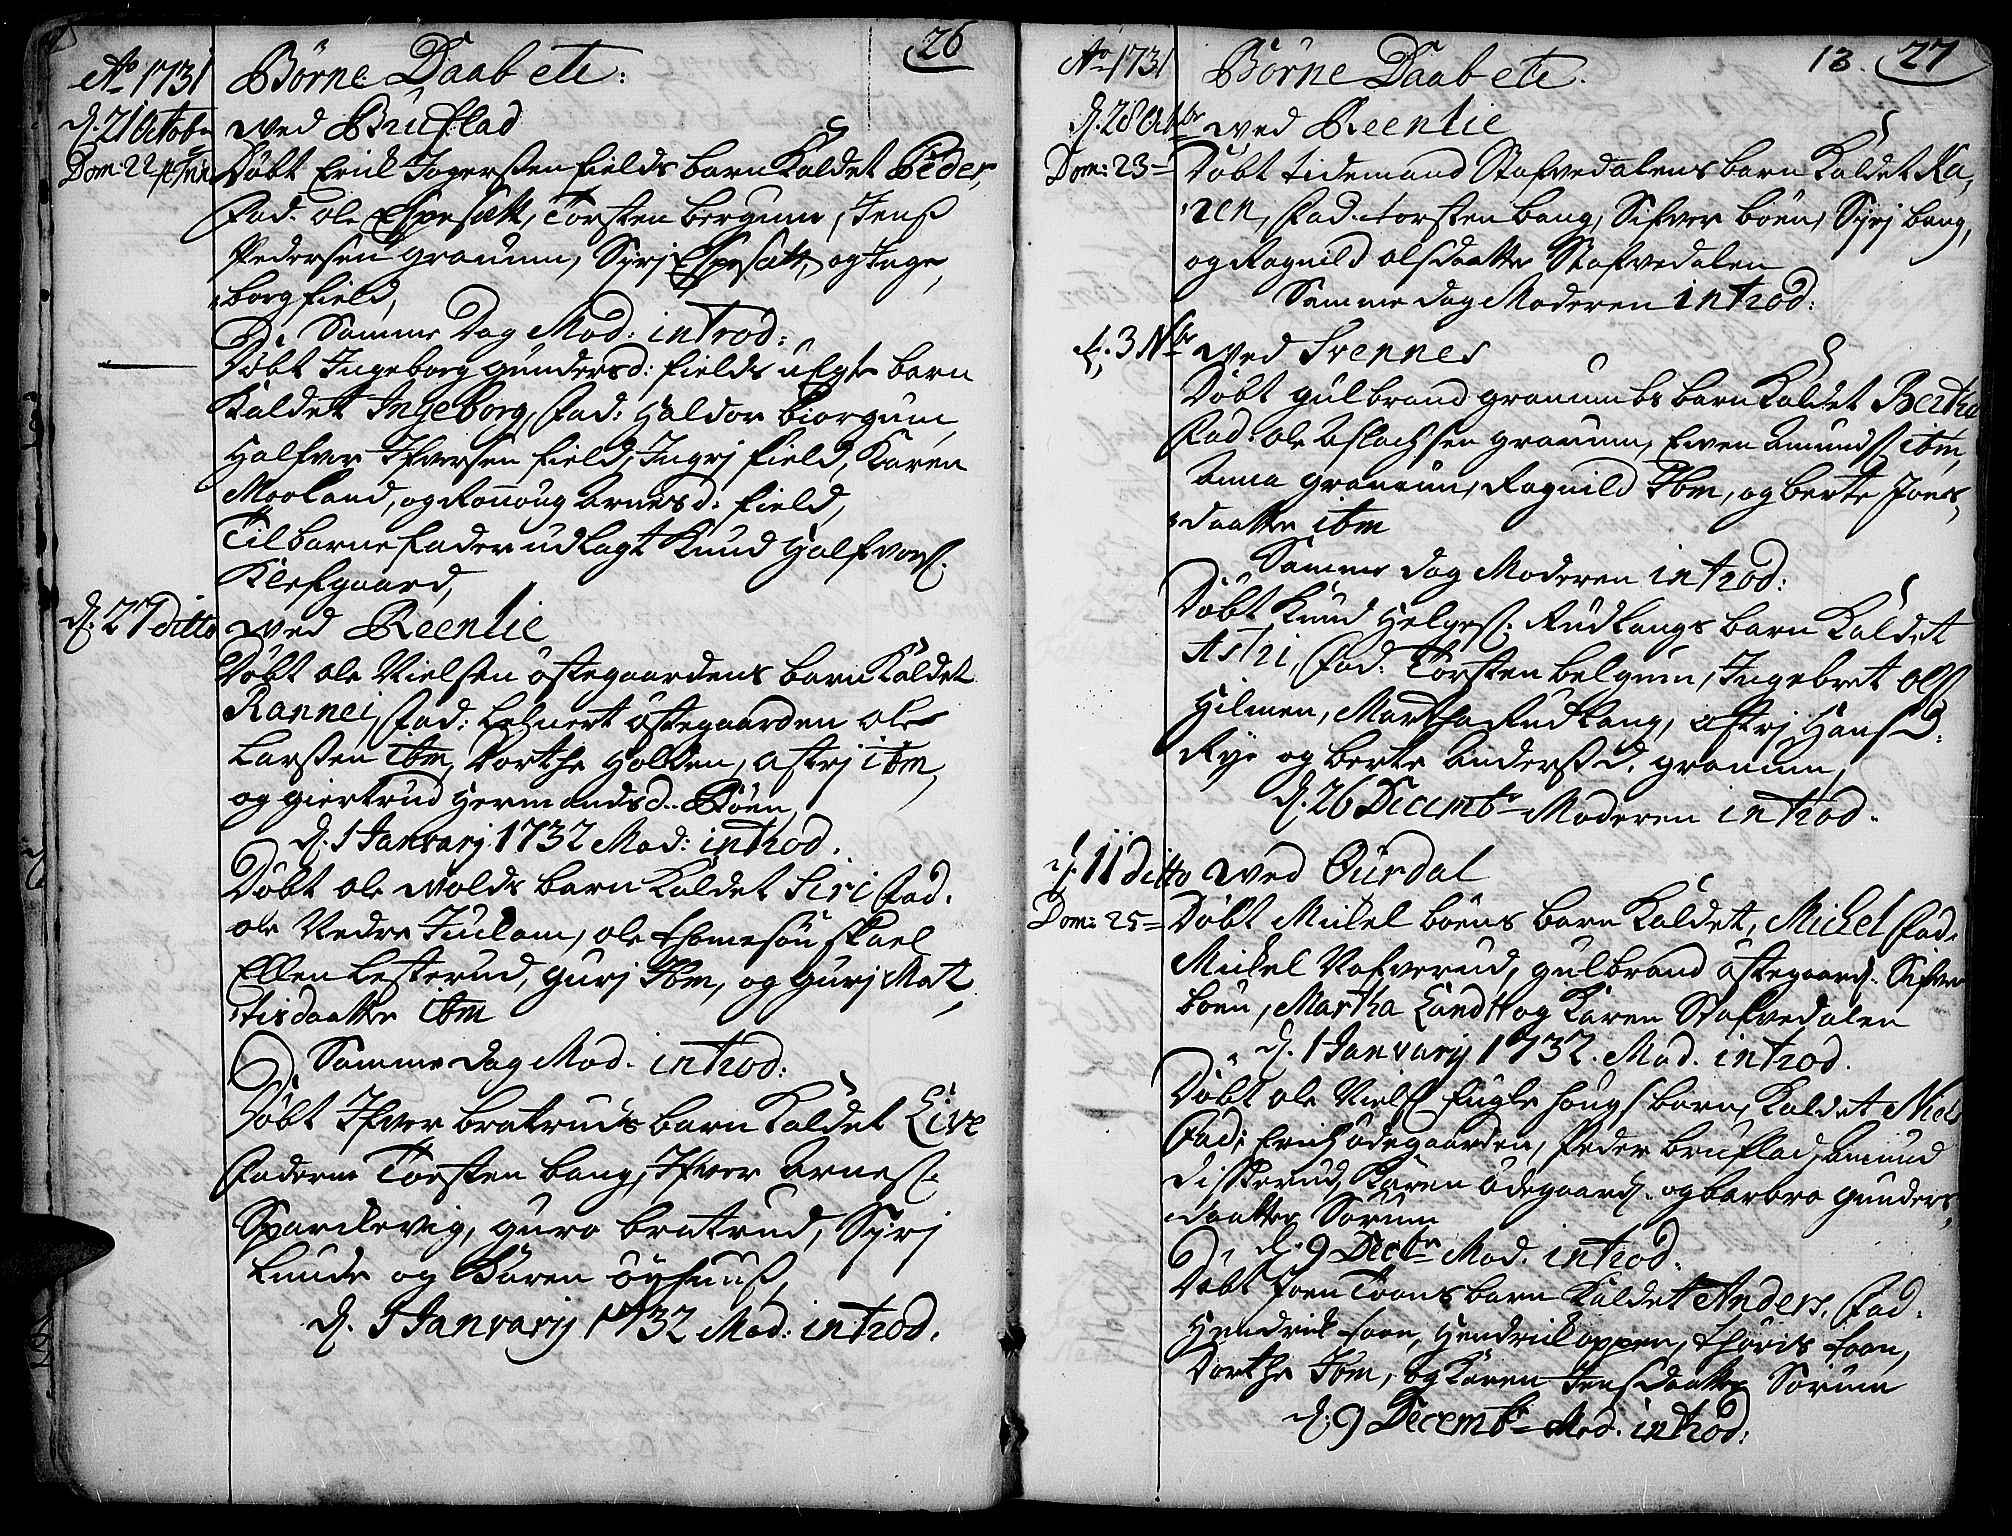 26
Ao 1731
Börne Daabete:
d. 21 Octobr
wed Bruflad
Dom: 22 p Trin
Döbt Erick Ingersten fields barn Kaldet Peder,
Fad: ole Espesætt, Torsten bergum, Jens
Pedersen granum, Syrj Espesætt, og Inge,
borg field,
Samme Dag Mod: introd:
Döbt Ingeborg gundersd: fields uEgte barn
Kaldet Ingeborg, Fad: Haldor biorgum,
Halfver Ifversen field, Ingrj field, Karen
Mooland, og Ronoug arnesd: field,
Til barnefader udlagt Knud Halfvors.
Klefgaard,
d. 27 ditto
wed Reenlie
Döbt ole Nielsen östegaardens barn Kaldet
Rannei, Fad: Lehnert östegaarden ole
Larsten ibm, Dorthe Holden, astrj ibm,
og giertrud Hermandsd. Böen,
d. 1 Januarij 1732 Mod: introd.
Döbt ole wolds barn Kaldet Siri Fad.
ole Nedre Juulam, ole thomesön skael
Ellen Lesterud, gurj Ibm, og gurj Mat,
tisdaatter ibm
Samme dag Mod. introd:
Döbt Ifver bratruds barn Kaldet Live
Faderne Torsten bang, Ifver arnes.
Spardlevig, guro bratrud, Syrj
Lunde og Karen öyhuuss,
d. 1 Januarij 1732 Mod: introd.
13. 27
Ao 1731
Börne Daabete.
d. 28 Octbr
wed Reenlie
Dom: 23
Döbt tidemand Stafvedalens barn Kaldet Ka,
ren, Fad. torsten bang, Sifver böen, Syrj bang,
og Ragnild olsdaatter Stafvedalen
Samme dag Moderen introd:
d. 3 Nbr
wed Svennes
Döbt gulbrand granumbs barn Kaldet Bertha
Fad: ole aslachsen granum, Ewen amunds ibm,
Anna granum, Ragnild Ibm, og berte Joens,
daatter ibm
Samme dag Moderen introd:
Döbt Knud Helges. Rudlangs barn Kaldet
Astri, Fad: Torsten belgum, Ingebret ols
Hilmen, Martha Rudlang, astrj Hans D.
Rye og berte anders D. granum,
d. 26 Decembr Moderen introd.
d. 11 ditto
wed Ourdal
Dom: 25
Döbt Mickel böens barn Kaldet, Michel Fad.
Mickel Nafverud, gulbrand östegaard. Sifver
böen, Martha Lundt og Karen Stafvedalen
d. 1 Januarij 1732. Mod. introd.
Döbt ole Niels fugle hougs barn, Kaldet Niels
Fad: Erich ödegaarden, Peder bruflad, amund
Disterud, Karen ödegaard. og barbro gunders,
daatter Sorum
d. 9 Decbr Mod. introd.
Döbt Joen Toens barn Kaldet Anders, Fad.
Hendrick toen, Hendrick oppen, thöris toen,
Dorthe Ibm, og Karen Jens daatter Sörum
d. 9 Decembr Mod. introd: